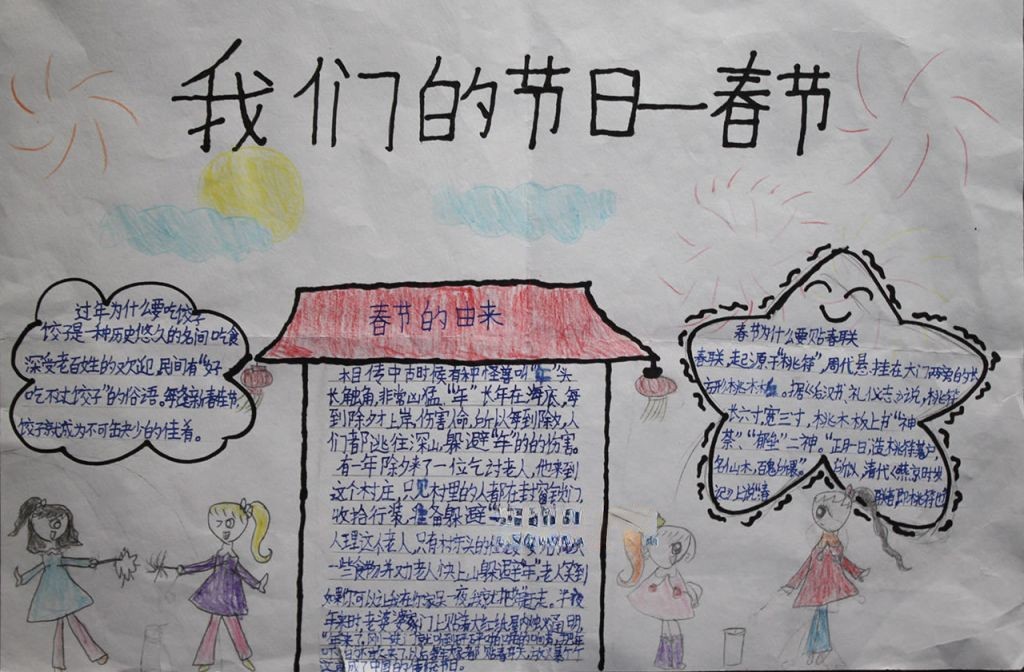 我们的节日—春节
过年为什么要吃饺子
饺子是一种历史悠久的名间吃食
深受老百姓的欢迎,民间有"好
吃不过饺子"的俗语。每逢新春佳节
饺子就成为不可缺少的佳肴。
春节的由来
相传中古时候有种怪兽叫"年"头
长触角,非常凶猛."年"长年在海底,每
到除夕才上岸,伤害人命,所以每到除夕,人
们都逃往深山,躲避"年"的的伤害。
有一年除夕来了一位乞讨老人,他来到
这个村庄,只见村里的人都在封窗锁门,
收拾行装,准备躲避
人理这个老人,只有村东头的
一些食物并对老人快上山躲避"年",老人笑到
如果你可以让我在你家呆一夜我就把"年"赶走。子夜
年来时老婆婆家门上贴满大红纸屋内烛火通明
春节为什么要贴春联
春联,起源于"桃符",周代悬挂在大门两旁的长
方形桃木板。据后汉书·礼仪志》说,桃符
长六寸宽三寸,桃木板上书"神
荼"、"郁垒"二神。"正月一日,造桃符著户
名仙木,百鬼所畏"。所以,清代《燕京时岁
记》上说"春联者即桃符也